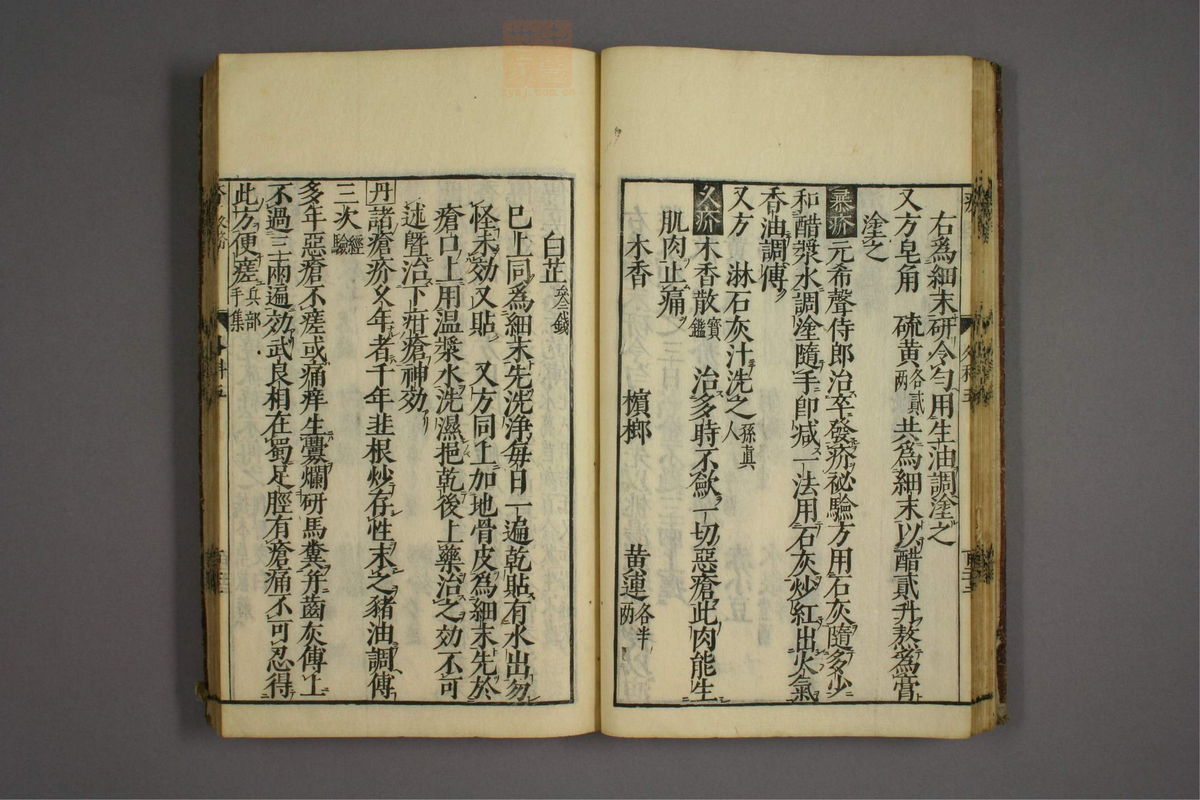 右爲細末研令勻用生油調塗之
又方皂角　硫黃各貳兩共爲細末以醋貳升熬爲膏
塗之
元希聲侍郎治卒發疥祕驗方用石灰隨多少
和醋漿水調塗隨手卽减一法用石灰炒紅出火氣
香油調傅
又方　淋石灰汁洗之孫眞人
久疥木香散寳鑑　治多時不歛一切惡瘡此肉能生
肌肉止痛
木香　檳榔　黃連各半兩
白芷叄錢
已上同爲細末先洗淨每日一遍乾貼有水出勿
怪未効又貼　又方同上加地骨皮爲細末先於
瘡口上用溫漿水洗濕挹乾後上藥治之効不可
述曁治下疳瘡神効
丹諸瘡疥久年者千年韭根炒存性末之豬油調傅
三次經驗
多年惡瘡不瘥或痛痒生爛研馬糞幷齒灰傅上
不過三兩遍効武良相在蜀足脛有瘡痛不可忍得
此方便瘥兵部手集